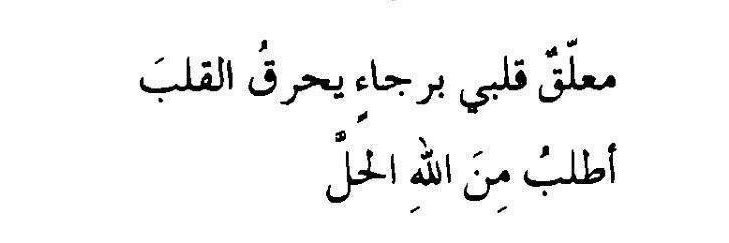 معلّقٌ قلبي برجاءٍ يحرقُ القلبَ
أطلبُ مِنَ اللهِ الحلَّ